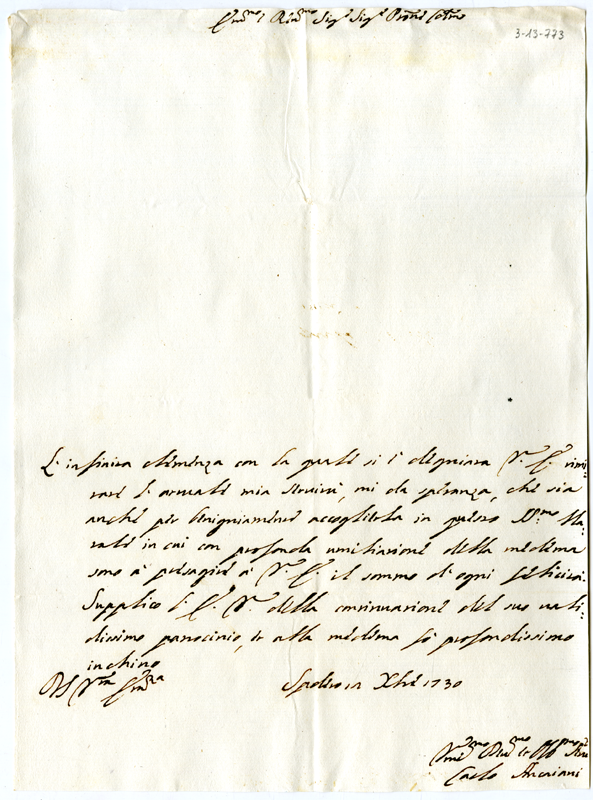 Em.mo e Rev.mo Sig.r Sig.r Pron.e Col.mo
3-13-773
L'infinita clemenza con la quale si è degniata V. E. rimi:
rare l'attuale mia servitù, mi da speranza, che sia
anche per benigniamente accoglierla in questo SS.mo Na:
tale in cui con profonda umiliatione della medema
sono à presagire à V. E. il sommo d'ogni felicità.
Supplico l'E. V. della continuatione del suo vali:
dissimo patrocinio, et alla medema fò profondissimo
inchino
Di V.ra Em.za
Spoleto 12 Xbre 1730
Um.mo Dev.mo et Obb.mo Ser.
Carlo Ancaiani